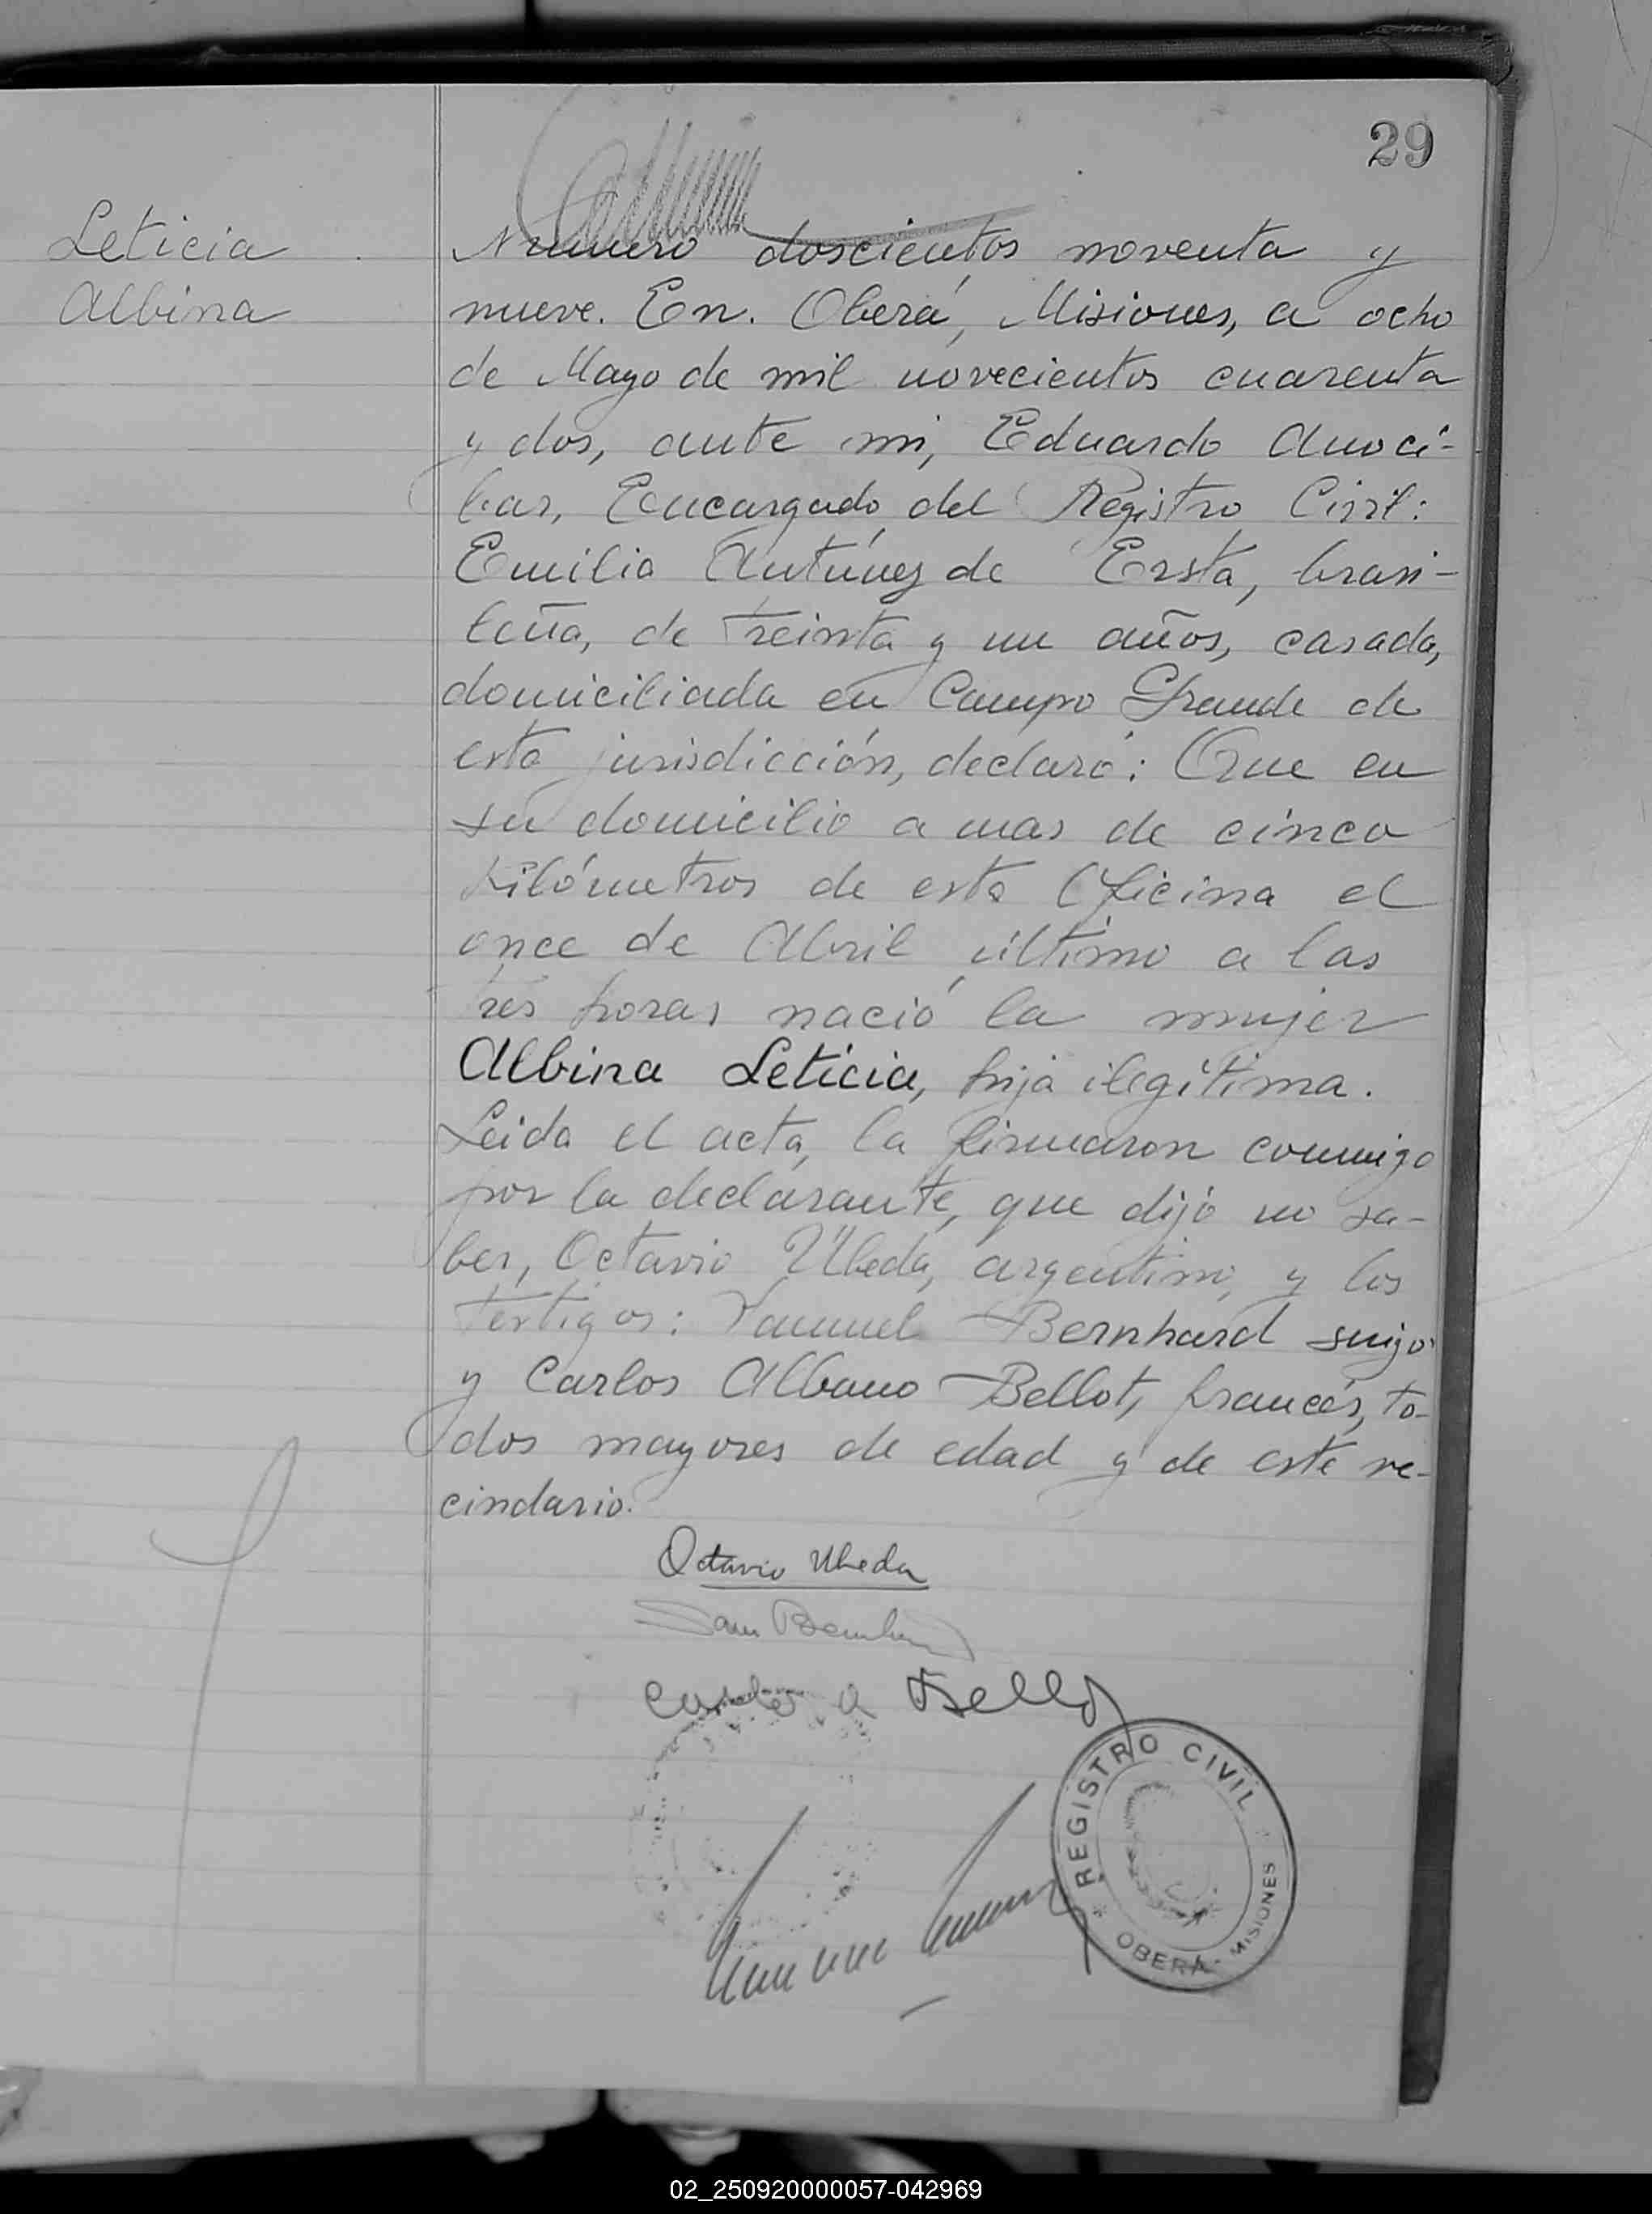 29
Leticia
Albina
Número doscientos noventa y
nueve. En. Oberá, Misiones, a ocho
de Mayo de mil novecientos cuarenta
y dos, ante mi, Eduardo Anocí-
bar, Encargado del Registro Civil:
Emilia Antúnez de Ersta, brasi-
leña, de treinta y un años, casada,
domiciliada en Campo Grande de
esta jurisdicción, declaró: Que en
su domicilio a mas de cinco
kilómetros de esta Oficina el
once de Abril último a las
tres horas nació la mujer
Albina Leticia, hija ilegítima.
Leida el acta, la firmaron conmigo
por la declarante, que dijo no sa-
ber, Octavio Úbeda, argentino, y los
testigos: Samuel Bernhard suizo
y Carlos Albano Bellot, francés, to-
dos mayores de edad y de este ve-
cindario.
Octavio Ubeda
Sam Bernhard
Carlos A Bellot
REGISTRO CIVIL
OBERA - MISIONES
02_250920000057-042969